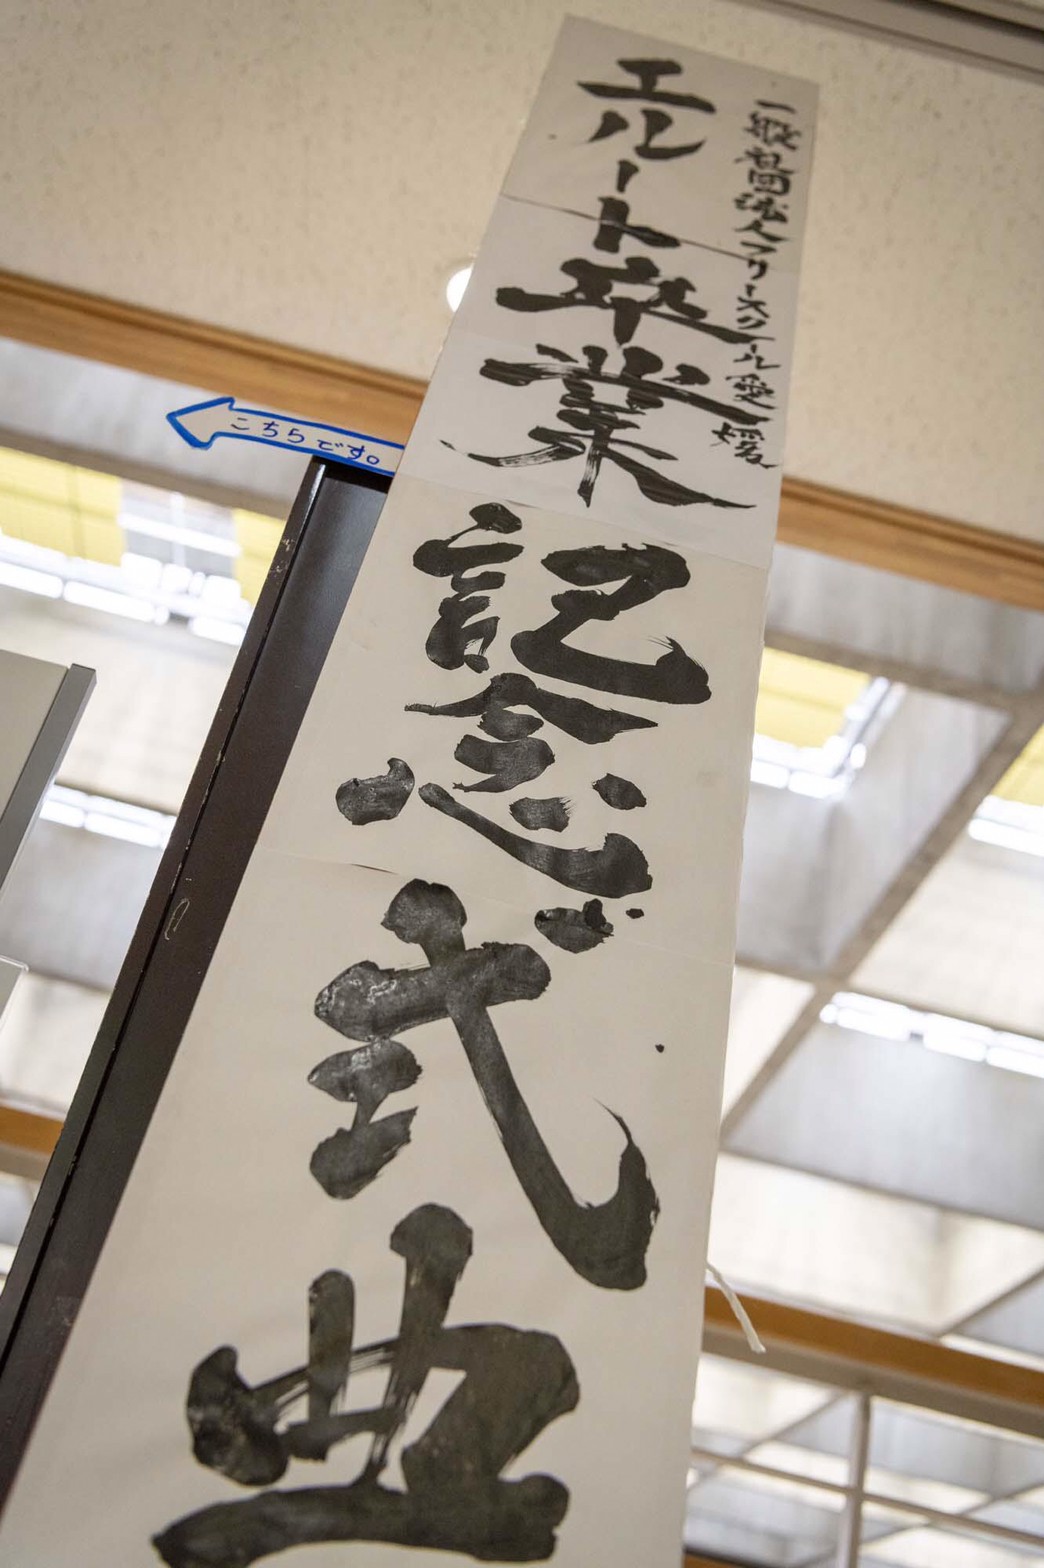 一般社団法人フリースクール愛媛
エルート卒業記念式典
こちらです。